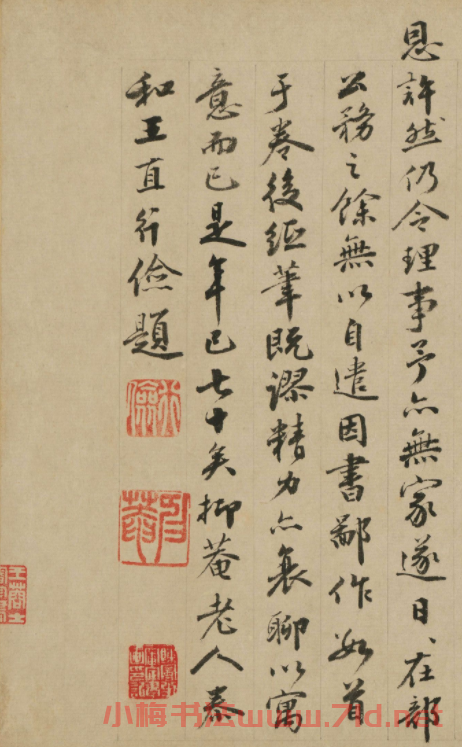 恩許然仍令理事予亦無家遂日、在部
公務之餘無以自遣因書鄙作數首
于卷後絙筆既謬精力亦衰聊以寓
意而已是年已七十矣抑菴老人泰
和王直行儉題
小梅书法www.71d.net